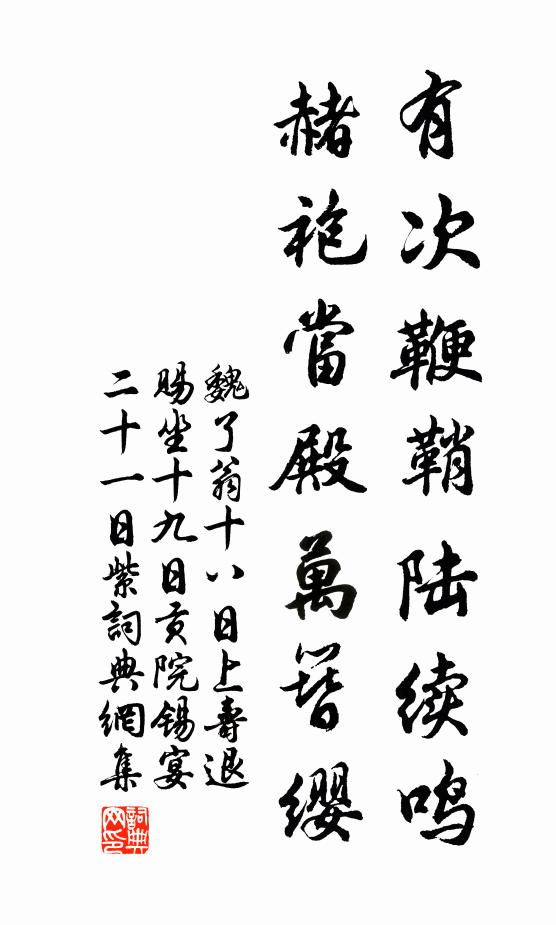 有次鞭鞘陆续鸣
赭袍當殿萬簪纓
魏了翁十八日上壽退
賜坐十九日貢院锡宴
二十一日紫詞典網集
詞典网印